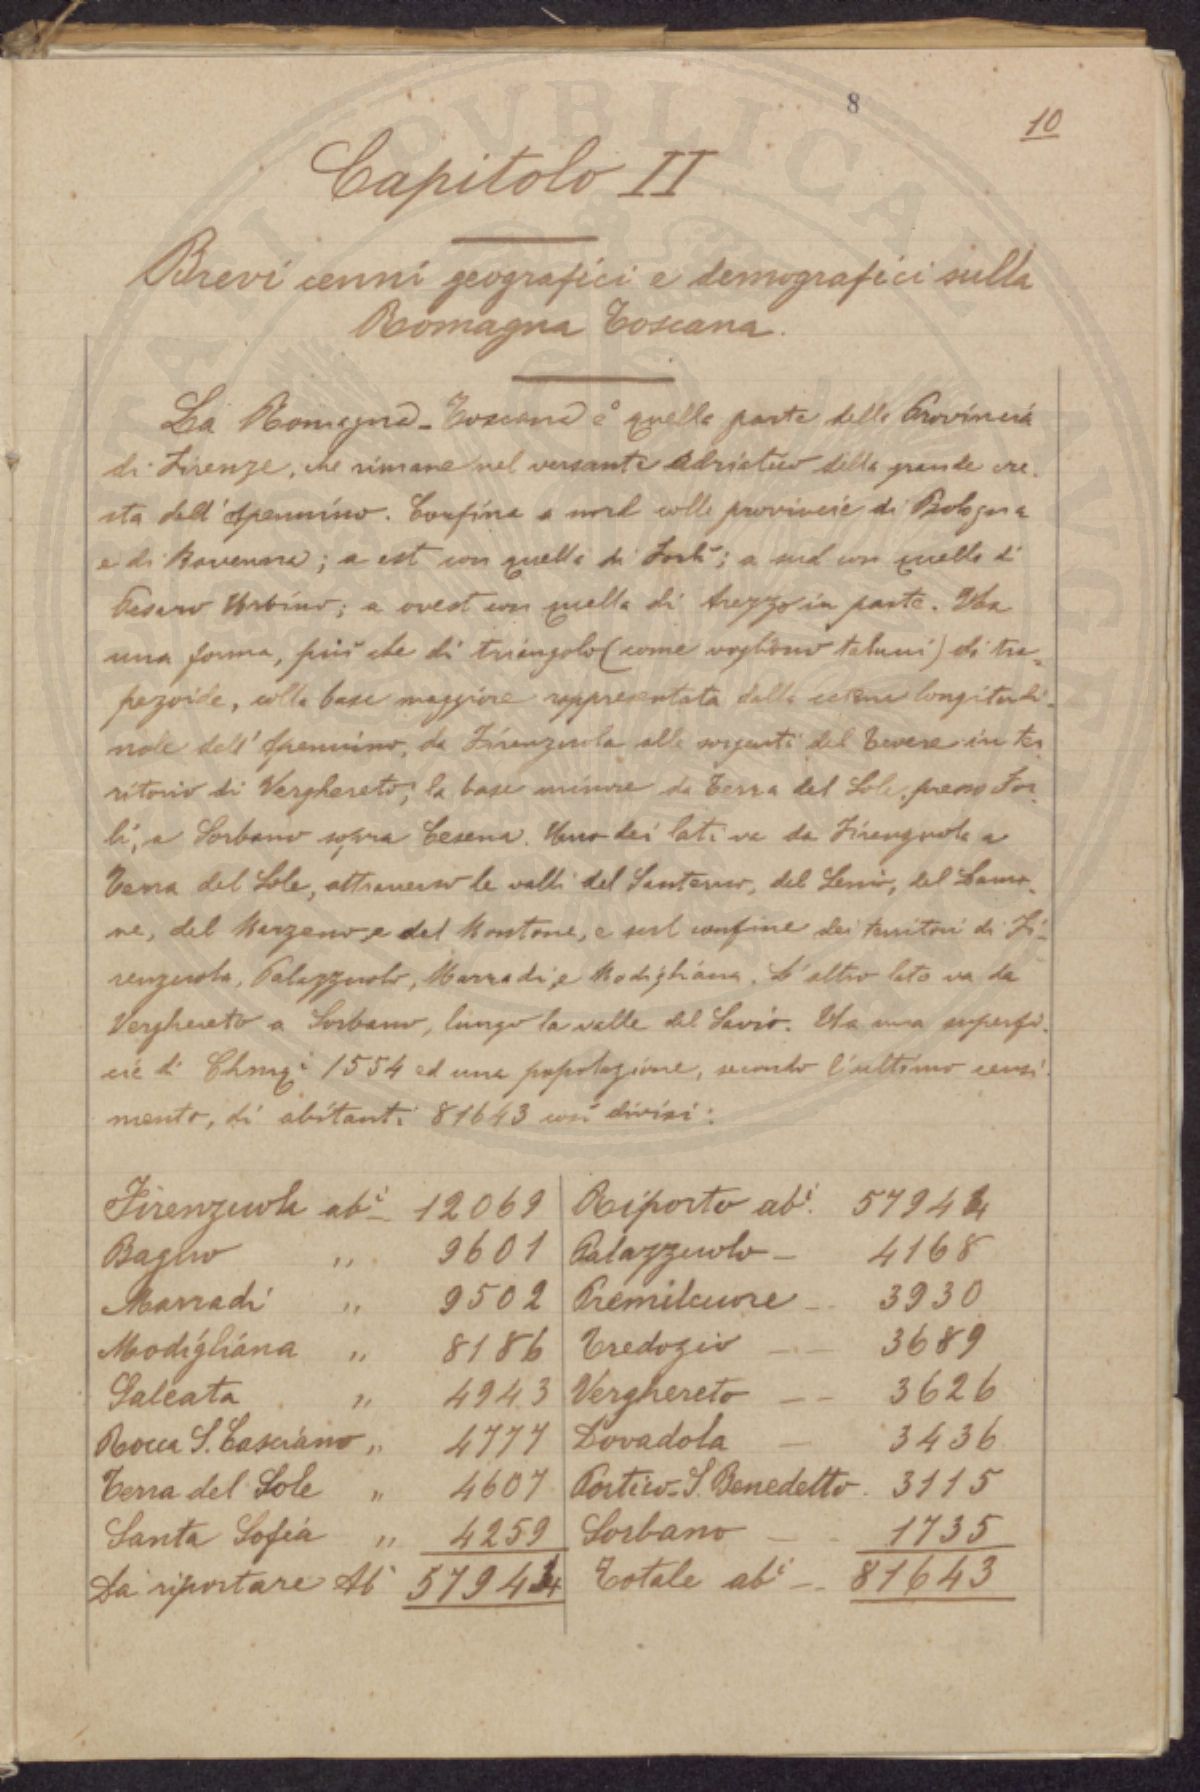 8
10
Capitolo II
Brevi cenni geografici e demografici sulla
Romagna Toscana.
La Romagna-Toscana è quella parte della Provincia
di Firenze, che rimane nel versante Adriatico della grande cre-
sta dell'Apennino. Confina a nord colle provincie di Bologna
e di Ravenna; a est con quella di Forlì; a sud con quella di
Pesaro Urbino; a ovest con quella di Arezzo in parte. Ha
una forma, più che di triangolo (come vogliono taluni) di tra-
pezoide, colla base maggiore rappresentata dalla catena longitudi-
nale dell'Apennino, da Firenzuola alle sorgenti del Tevere in ter
ritorio di Verghereto; la base minore da Terra del Sole, presso For-
lì, a Sorbano sopra Cesena. Uno dei lati va da Firenzuola a
Terra del Sole, attraverso le valli del Santerno, del Senio, del Lamo-
ne, del Marzeno, e del Montone, e sul confine dei territori di Fi-
renzuola, Palazzuolo, Marradi, e Modigliana. L'altro lato va da
Verghereto a Sorbano, lungo la valle del Savio. Ha una superfi-
cie di Chmqⁱ 1554 ed una popolazione, secondo l'ultimo censi-
mento, di abitanti 81643 così divisi:
Firenzuola abⁱ 12069 Riporto abⁱ. 57944
Bagno " 9601 Palazzuolo - 4168
Marradi " 9502 Premilcuore - 3930
Modigliana " 8186 Tredozio - - 3689
Galeata " 4943 Verghereto - - 3626
Rocca S. Casciano " 4777 Dovadola - 3436
Terra del Sole " 4607 Portico-S. Benedetto. 3115
Santa Sofia " 4259 Sorbano - 1735
Da riportare Abⁱ 57944 Totale abⁱ - 81643